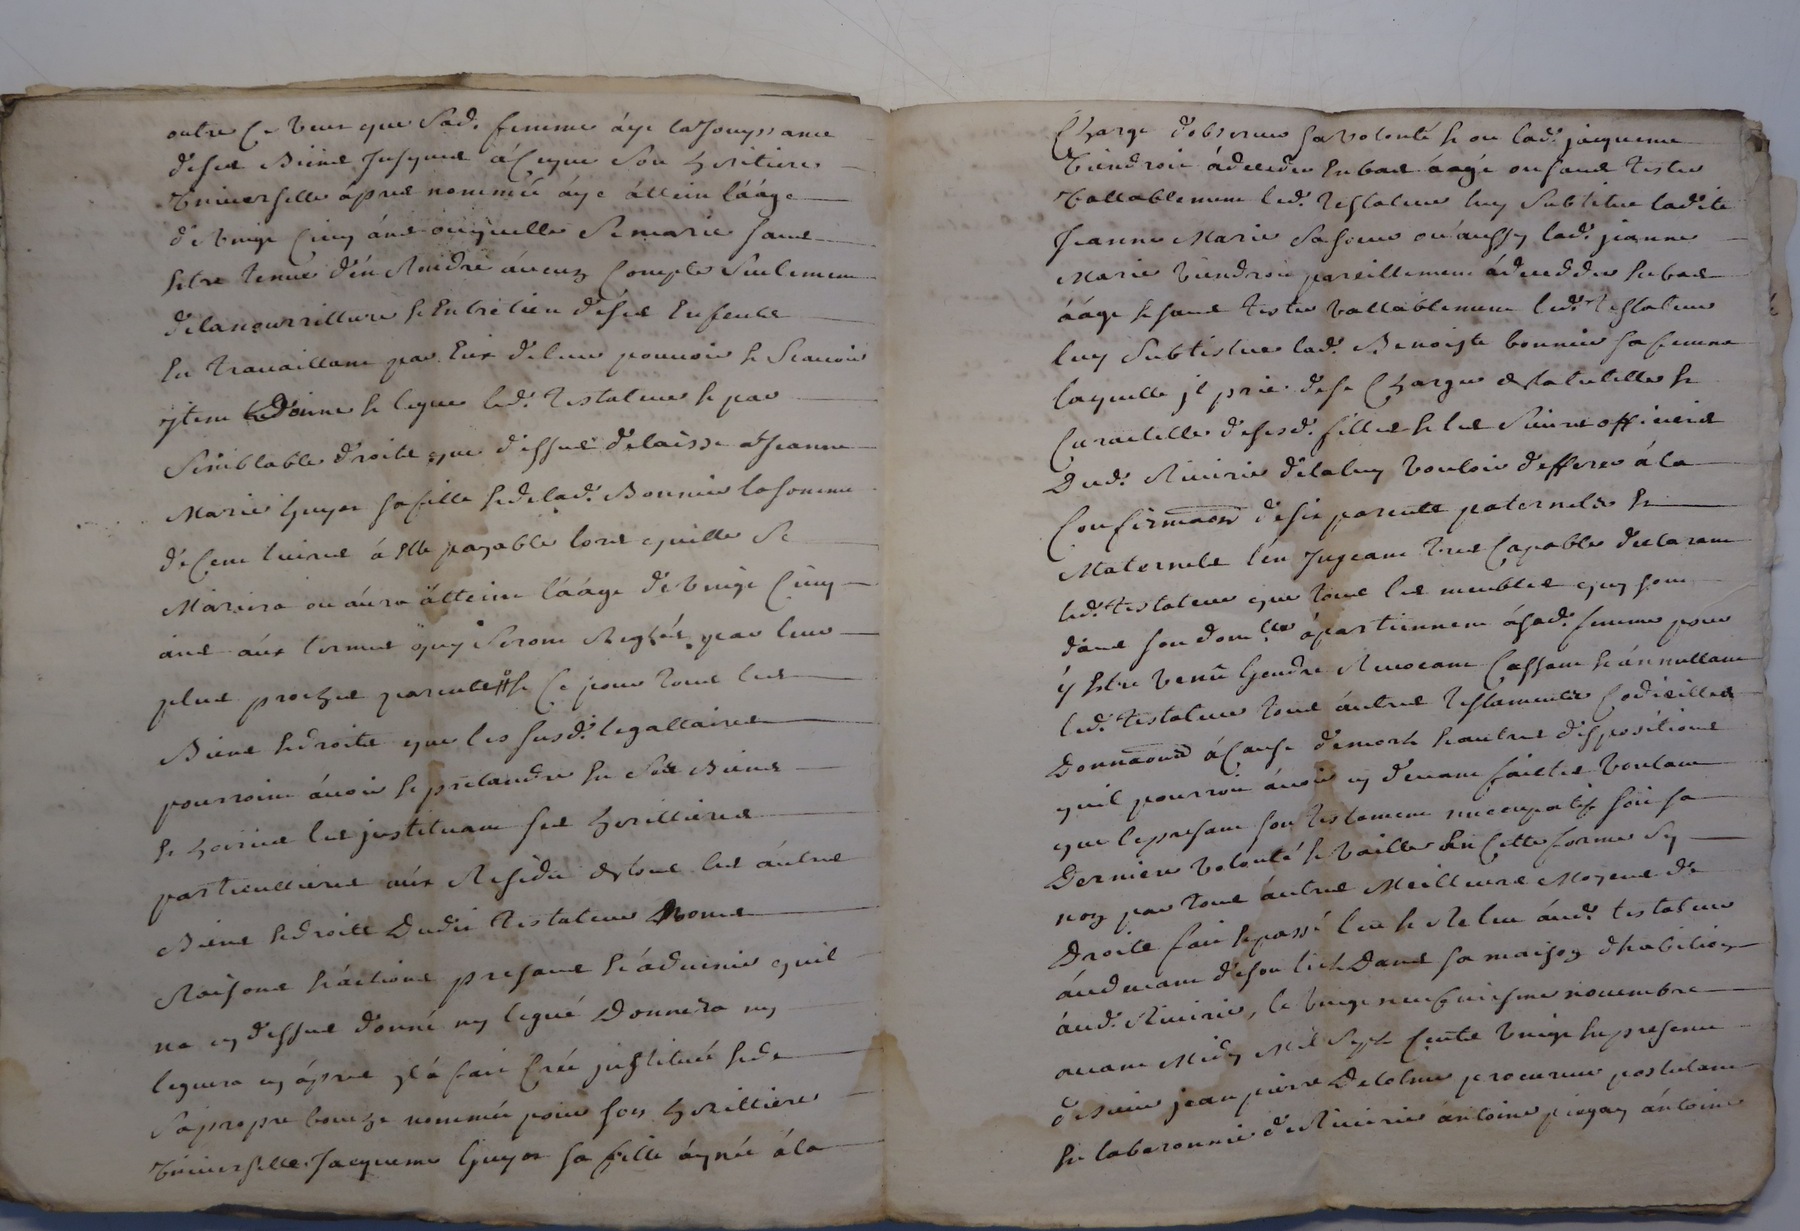 outre Ce veut que Sad. femme áye la Jouyssance
deses Biens Jusques á Ceque Son heritiere
Universelle ápres nommée áye átteint lááge
de vingt Cinq áns ouquelle Se marie sans
Estre tenue d'én Rendre áucung Compte Seulement
dela nourritture Et Entretien de ses Enfents
En travaillant par Eux de leur pouvoir Et Scavoir
jtem Donne Et legue led. Testateur Et par
Semblable droit que dessus délaisse a Jeanne
Marie Guyot sa fille Et de lad. Bonnier la somme
de Cent livres á Elle payable lors quelle Se
Mariera ou áura átteint lááge de vingt Cinq
áns áux termes quy Seront Reglés par leur
plus proches parents Et Ce pour tous les
Biens Et droits que les susd. legattaires
pourroint ávoir Et pretandre En Ses Biens
Et hoirie les jnstituant ses herittieres
particullieres áux Residu de tous les áutres
Biens Et droits Dudit Testateur Noms
Raisons Et áctions presans Et ádvenir quil
na cy dessus donné ny legué Donnera ny
leguera cy ápres jl á fait Créé jnstitué Et de
Sa propre bouche nommée pour son herittiere
Universelle Jacqueme Guyot sa fille áynée á la
Charge d'observer sa volonté Et ou lad. jacqueme
viendroit á deceder En bas áágé ou sans tester
vallablement led. Testateur luy Subtitue ladite
Jeanne Marie Sa soeur ou áussy lad. jeanne
Marie viendroit pareillement á decedder En bas
áage Et sans tester vallablement led. Testateur
luy Subtistue lad. Benoiste bonnier sa femme
laquelle jl prie de se Charger de la tutelle Et
Curatelle de sesd. filles Et les Sieurs officiers
Dud. Riverie de la luy vouloir defferer á la
Confirmaon de ses parents paternels Et
Maternels l'en Jugeant tres Capable declarant
led. testateur que tous les meubles quy sont
dans son domlle ápartiennent á sad. femme pour
y Estre venu Gendre Revocant Cassant Et ánnullant
led. testateur tous áutres testaments Codicilles
Donnaons á Cause de mort Et autres dispositions
quil pourroit ávoir cy devant faittes voulant
que le presant son testament nuncupatif soit sa
Derniere volonté Et vaille En cette forme Sy
non par tous áutres Meilleurs Moyens de
Droits fait Et passé leu Et Releu áud. testateur
áudevant de son lict Dans sa maison d'habition
áud. Riverie, le vingt neufviesme novembre
avant Midy Mil Sept Cents vingt En presence
de Sieur jean pierre Delolme procureur postulant
En la baronnie de Riverie ántoine pingon ántoine